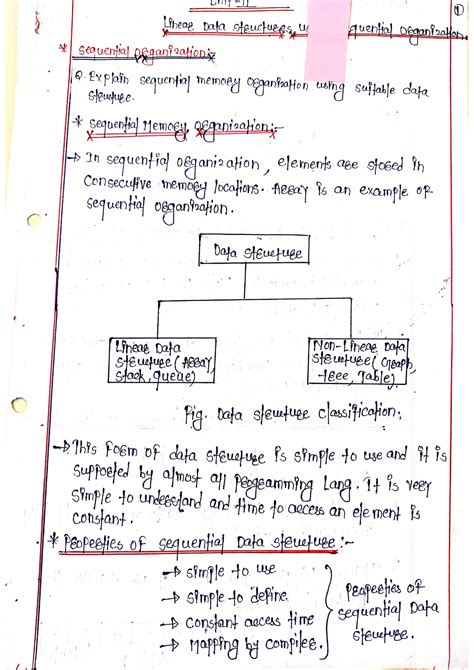 Unit-II
1
Linear Data Structures u sequential organization
* Sequential Organization:-
Q. Explain sequential memory organization using suitable data
structure.
* Sequential Memory Organization:-
→ In sequential organization, elements are stored in
consecutive memory locations. Array is an example of
sequential organization.
Data structure
Linear Data
structure (Array,
stack, queue)
Non-Linear Data
structure (Graph,
tree, Table)
Fig. Data structure classification:
→ This form of data structure is simple to use and it is
supported by almost all programming Lang. It is very
simple to understand and time to access an element is
constant.
* Properties of sequential Data structure:-
→ simple to use
→ simple to define
→ constant access time
→ Mapping by compiler.
Properties of
sequential Data
structure.